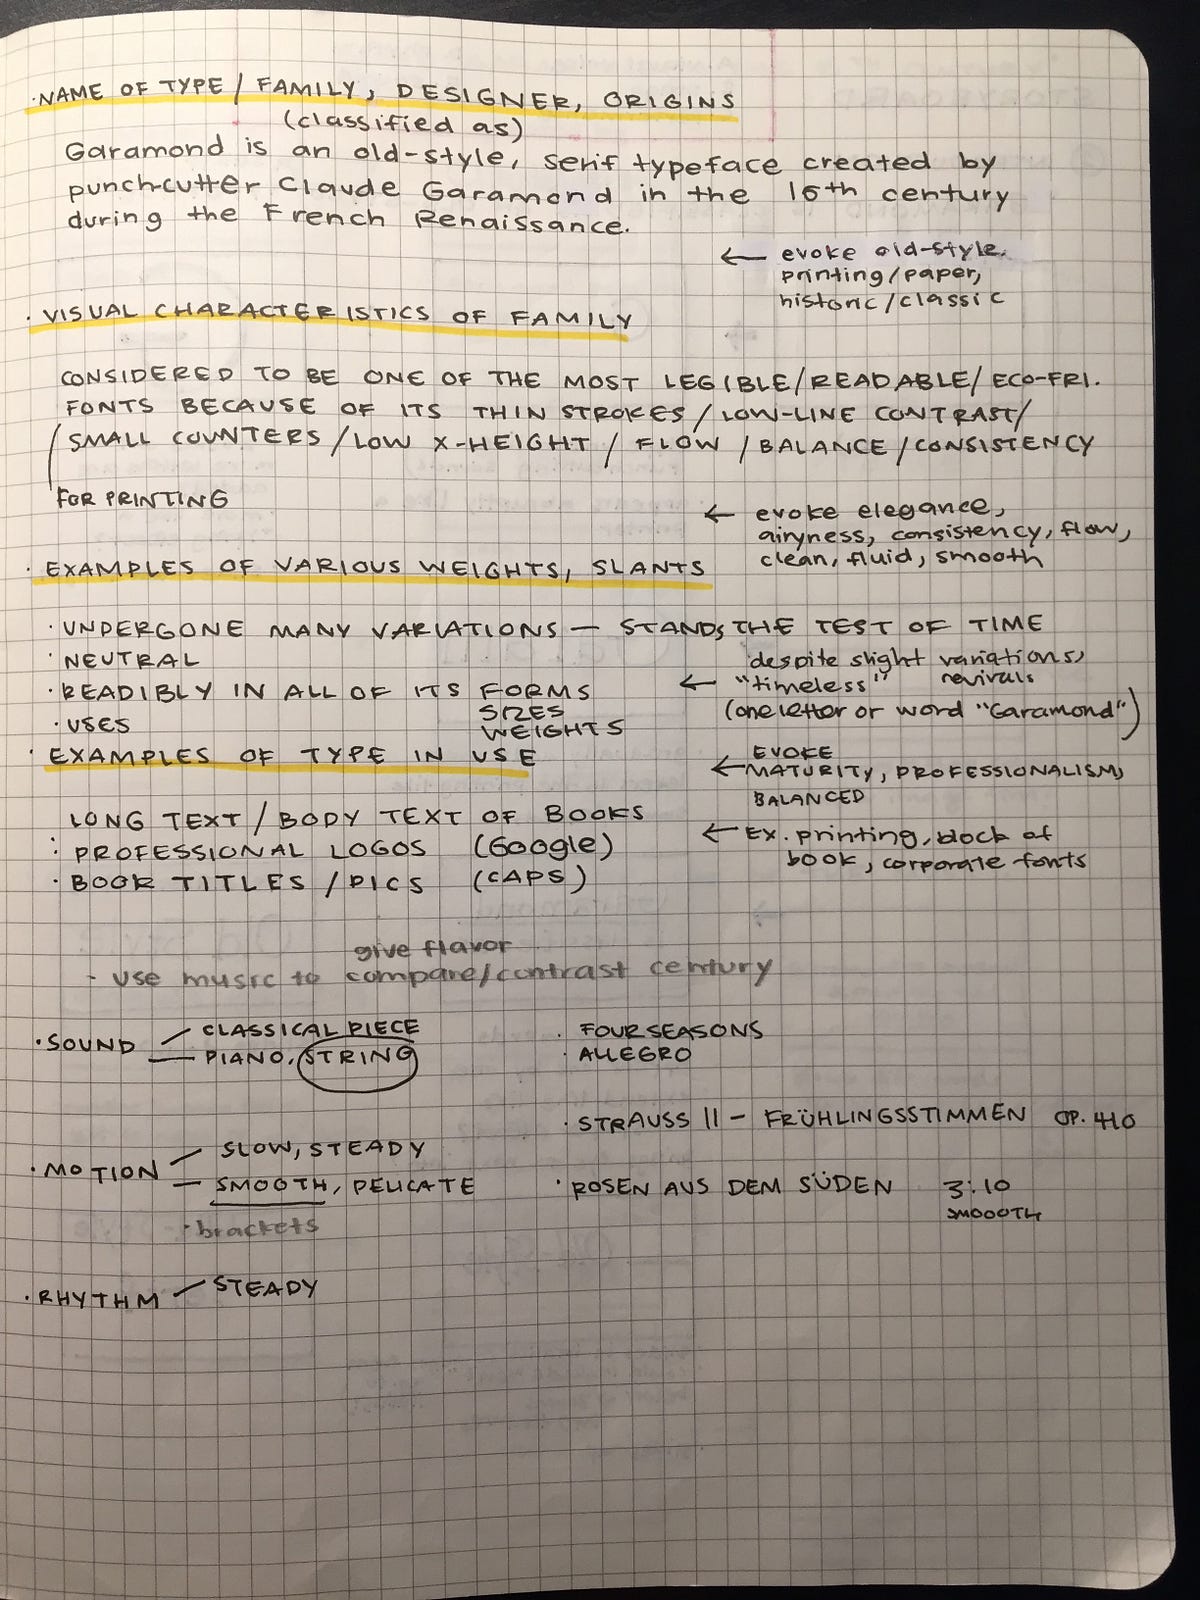 · NAME OF TYPE / FAMILY, DESIGNER, ORIGINS
(classified as)
Garamond is an old-style, serif typeface created by
punch-cutter Claude Garamond in the 16th century
during the French Renaissance.
← evoke old-style,
printing/paper,
historic/classic
· VISUAL CHARACTERISTICS OF FAMILY
CONSIDERED TO BE ONE OF THE MOST LEGIBLE/READABLE/ECO-FRI.
FONTS BECAUSE OF ITS THIN STROKES/LOW-LINE CONTRAST/
SMALL COUNTERS/LOW X-HEIGHT/FLOW/BALANCE/CONSISTENCY
FOR PRINTING
← evoke elegance,
airyness, consistency, flow,
clean, fluid, smooth
· EXAMPLES OF VARIOUS WEIGHTS, SLANTS
· UNDERGONE MANY VARIATIONS — STANDS THE TEST OF TIME
· NEUTRAL
· READIBLY IN ALL OF ITS FORMS
SIZES
WEIGHTS
· USES
despite slight variations,
← "timeless" revivals
(one letter or word "Garamond")
· EXAMPLES OF TYPE IN USE
← EVOKE
MATURITY, PROFESSIONALISM,
BALANCED
LONG TEXT/BODY TEXT OF BOOKS
· PROFESSIONAL LOGOS (Google)
· BOOK TITLES/PICS (CAPS)
← EX. printing, block of
book, corporate fonts
give flavor
- use music to compare/contrast century
· SOUND — CLASSICAL PIECE
— PIANO, STRING
· FOUR SEASONS
· ALLEGRO
· STRAUSS II - FRÜHLINGSSTIMMEN OP. 410
· MOTION — SLOW, STEADY
— SMOOTH, DELICATE
· brackets
· ROSEN AUS DEM SÜDEN 3:10
SMOOOTH
· RHYTHM — STEADY